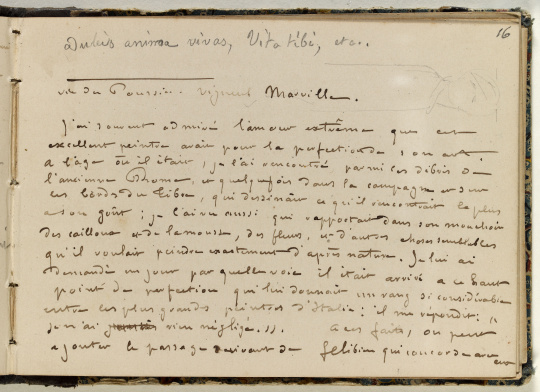 16
Dulcis anima vivas, Vita tibi, etc..
vie du Poussin. Vigneul Marville.
J'ai souvent admiré l'amour extrême que cet
excellent peintre avait pour la perfection de son art.
a l'age où il était, je l'ai rencontré parmi les débris de
l'ancienne Rome, et quelquefois dans la campagne et sur
les bords du Tibre, qui dessinait ce qu'il rencontrait le plus
a son goût; je l'ai vu aussi qui rapportait dans son mouchoir
des cailloux et de la mousse, des fleurs, et d'autres choses semblables
qu'il voulait peindre exactement d'après nature. Je lui ai
demandé un jour par quelle voie il était arrivé a ce haut
point de perfection, qui lui donnait un rang si considérable
entre les plus grands peintres d'Italie; il me répondit: "
je n'ai rien négligé.)). a ces faits, on peut
ajouter le passage suivant de félibien qui concorde avec